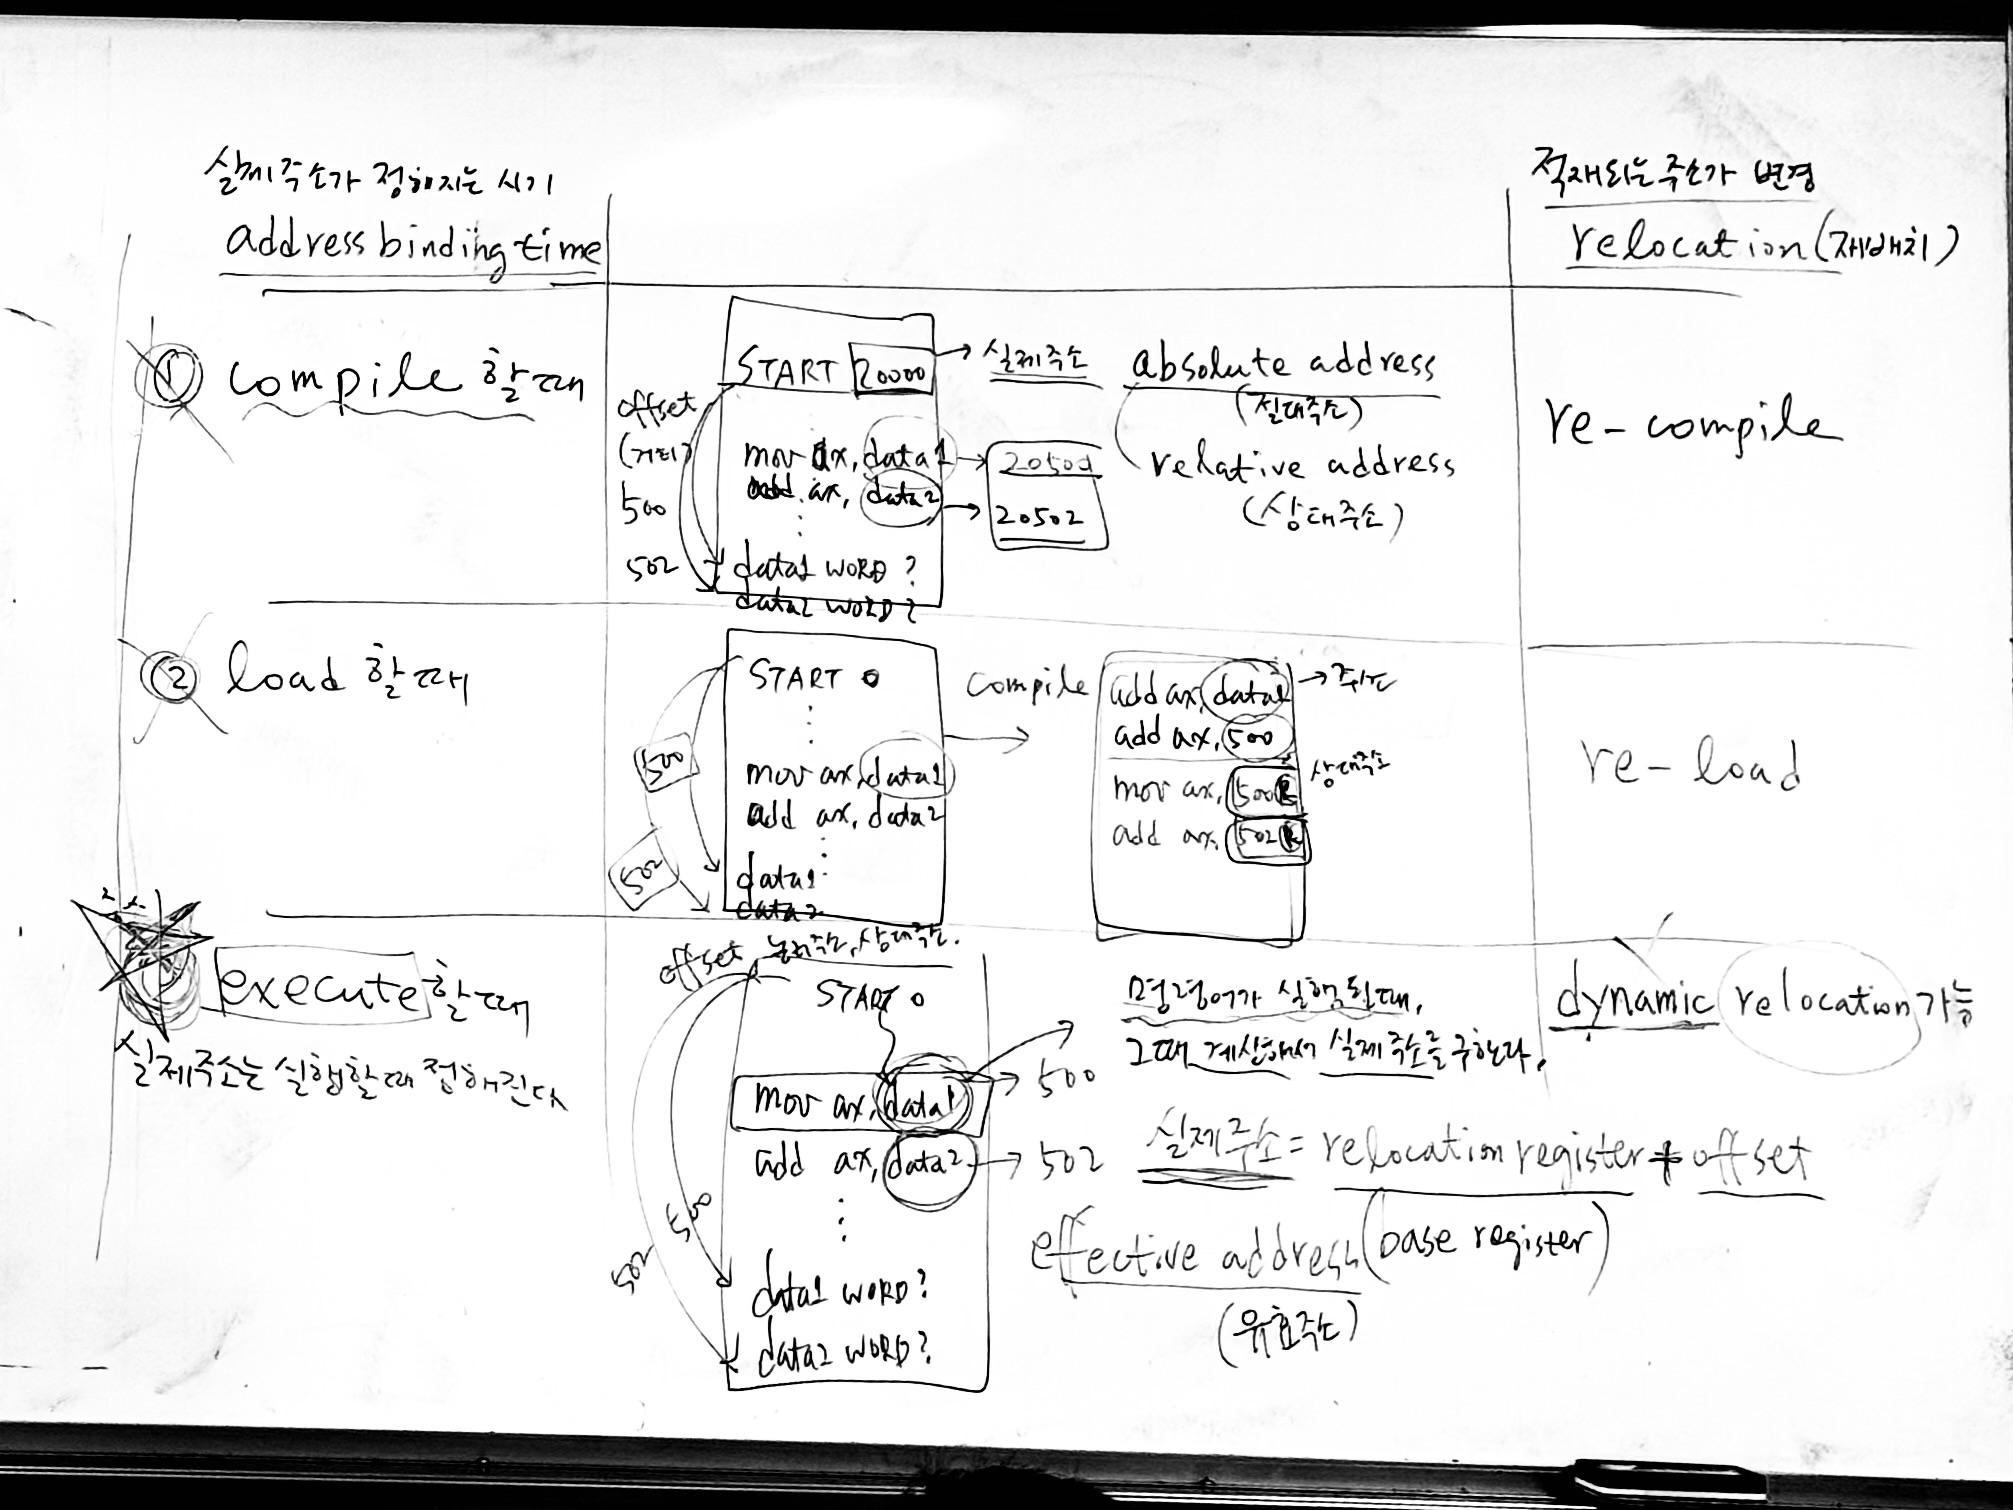 실제주소가 정해지는 시기
address binding time
적재되는 주소가 변경
relocation (재배치)
① compile 할때
offset
(거리)
500
502
START 20000 → 실제주소
mov ax, data1 → 20500
add ax, data2 → 20502
data1 WORD ?
data2 WORD ?
absolute address
(절대주소)
relative address
(상대주소)
re-compile
② load 할때
500
502
START 0
mov ax, data1
add ax, data2
data1
data2
compile
add ax, data1 → 주소
add ax, 500
mov ax, 500R
상대주소
add ax, 502R
re-load
execute 할때
실제주소는 실행할때 정해진다
offset 논리주소, 상대주소.
START 0
mov ax, data1 → 500
add ax, data2 → 502
500
502
data1 WORD?
data2 WORD?
명령어가 실행될때,
그때 계산해서 실제주소를 구한다.
실제주소 = relocation register + offset
effective address (base register)
(유효주소)
dynamic relocation 가능